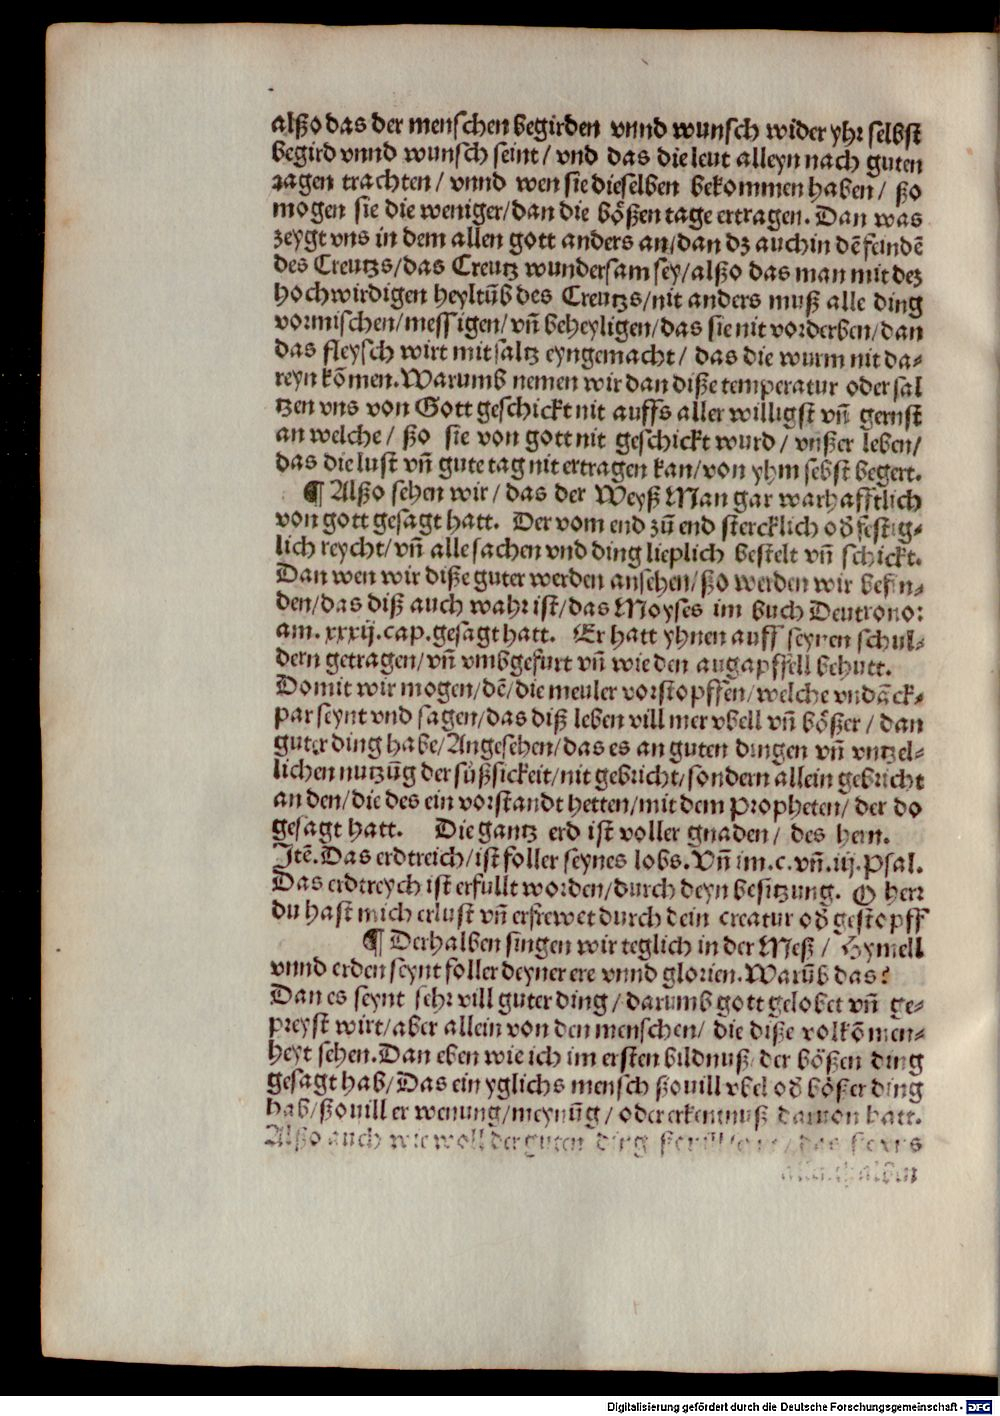 alßo das der menschen begirden vnnd wunsch wider yhr selbst
begird vnnd wunsch seint/ vnd das die leut alleyn nach guten
zagen trachten/ vnnd wen sie dieselben bekommen haben/ ßo
mogen sie die weniger/dan die bößen tage ertragen. Dan was
zeygt vns in dem allen gott anders an/dan dz auch in dē feindē
des Creutzs/das Creutz wundersam sey/alßo das man mit dez
hochwirdigen heyltūb des Creutzs/nit anders muß alle ding
vormischen/messigen/vn̄ beheyligen/das sie nit vorderben/dan
das fleysch wirt mit saltz eyngemacht/ das die wurm nit da⸗
reyn kōmen. Warumb nemen wir dan diße temperatur oder sal
tzen vns von Gott geschickt nit auffs aller willigst vn̄ gernst
an welche/ ßo sie von gott nit geschickt wurd/ vnßer leben/
das die lust vn̄ gute tag nit ertragen kan/von yhm sebst begert.
¶ Alßo sehen wir/ das der Weyß Man gar warhafftlich
von gott gesagt hatt. Der vom end zū end stercklich od̄ festig⸗
lich reycht/vn̄ alle sachen vnd ding lieplich bestelt vn̄ schickt.
Dan wen wir diße guter werden ansehen/ßo werden wir befin⸗
den/das diß auch wahr ist/das Moyses im buch Deutrono:
am. xxxij.cap.gesagt hatt. Er hatt yhnen auff seynen schul⸗
dern getragen/vn̄ vmbgefurt vn̄ wie den augapffell behutt.
Domit wir mogen/dē/die meuler vorstopffen/welche vndāck⸗
par seynt vnd sagen/das diß leben vill mer vbell vn̄ bößer/ dan
guter ding habe/Angesehen/das es an guten dingen vn̄ vntzel⸗
lichen nutzūg der süßsickeit/nit gebricht/sondern allein gebricht
an den/die des ein vorstandt hetten/mit dem Propheten/ der do
gesagt hatt. Die gantz erd ist voller gnaden/ des hern.
Itē. Das erdtreich/ist foller seynes lobs. Vn̄ im.c.vn̄.iij.Psal.
Das erdtreych ist erfullt worden/durch deyn besitzung. O herr
du hast mich erlust vn̄ erfrewet durch dein creatur od̄ gestopff
¶ Derhalben singen wir teglich in der Meß/ Hymell
vnnd erden seynt foller deyner ere vnnd glorien. Warūb das?
Dan es seynt sehr vill guter ding/ darumb gott gelobet vn̄ ge⸗
preyst wirt/aber allein von den menschen/ die diße volkōmen⸗
heyt sehen. Dan eben wie ich im ersten bildnuß/der bößen ding
gesagt hab/Das ein yglichs mensch ßouill vbel od̄ bößer ding
hab/ßouill er wenung/meynūg/ oder erkentnuß dauon hatt.
Alßo auch wie woll der guten ding
allenthalben
Digitalisierung gefördert durch die Deutsche Forschungsgemeinschaft - DFG